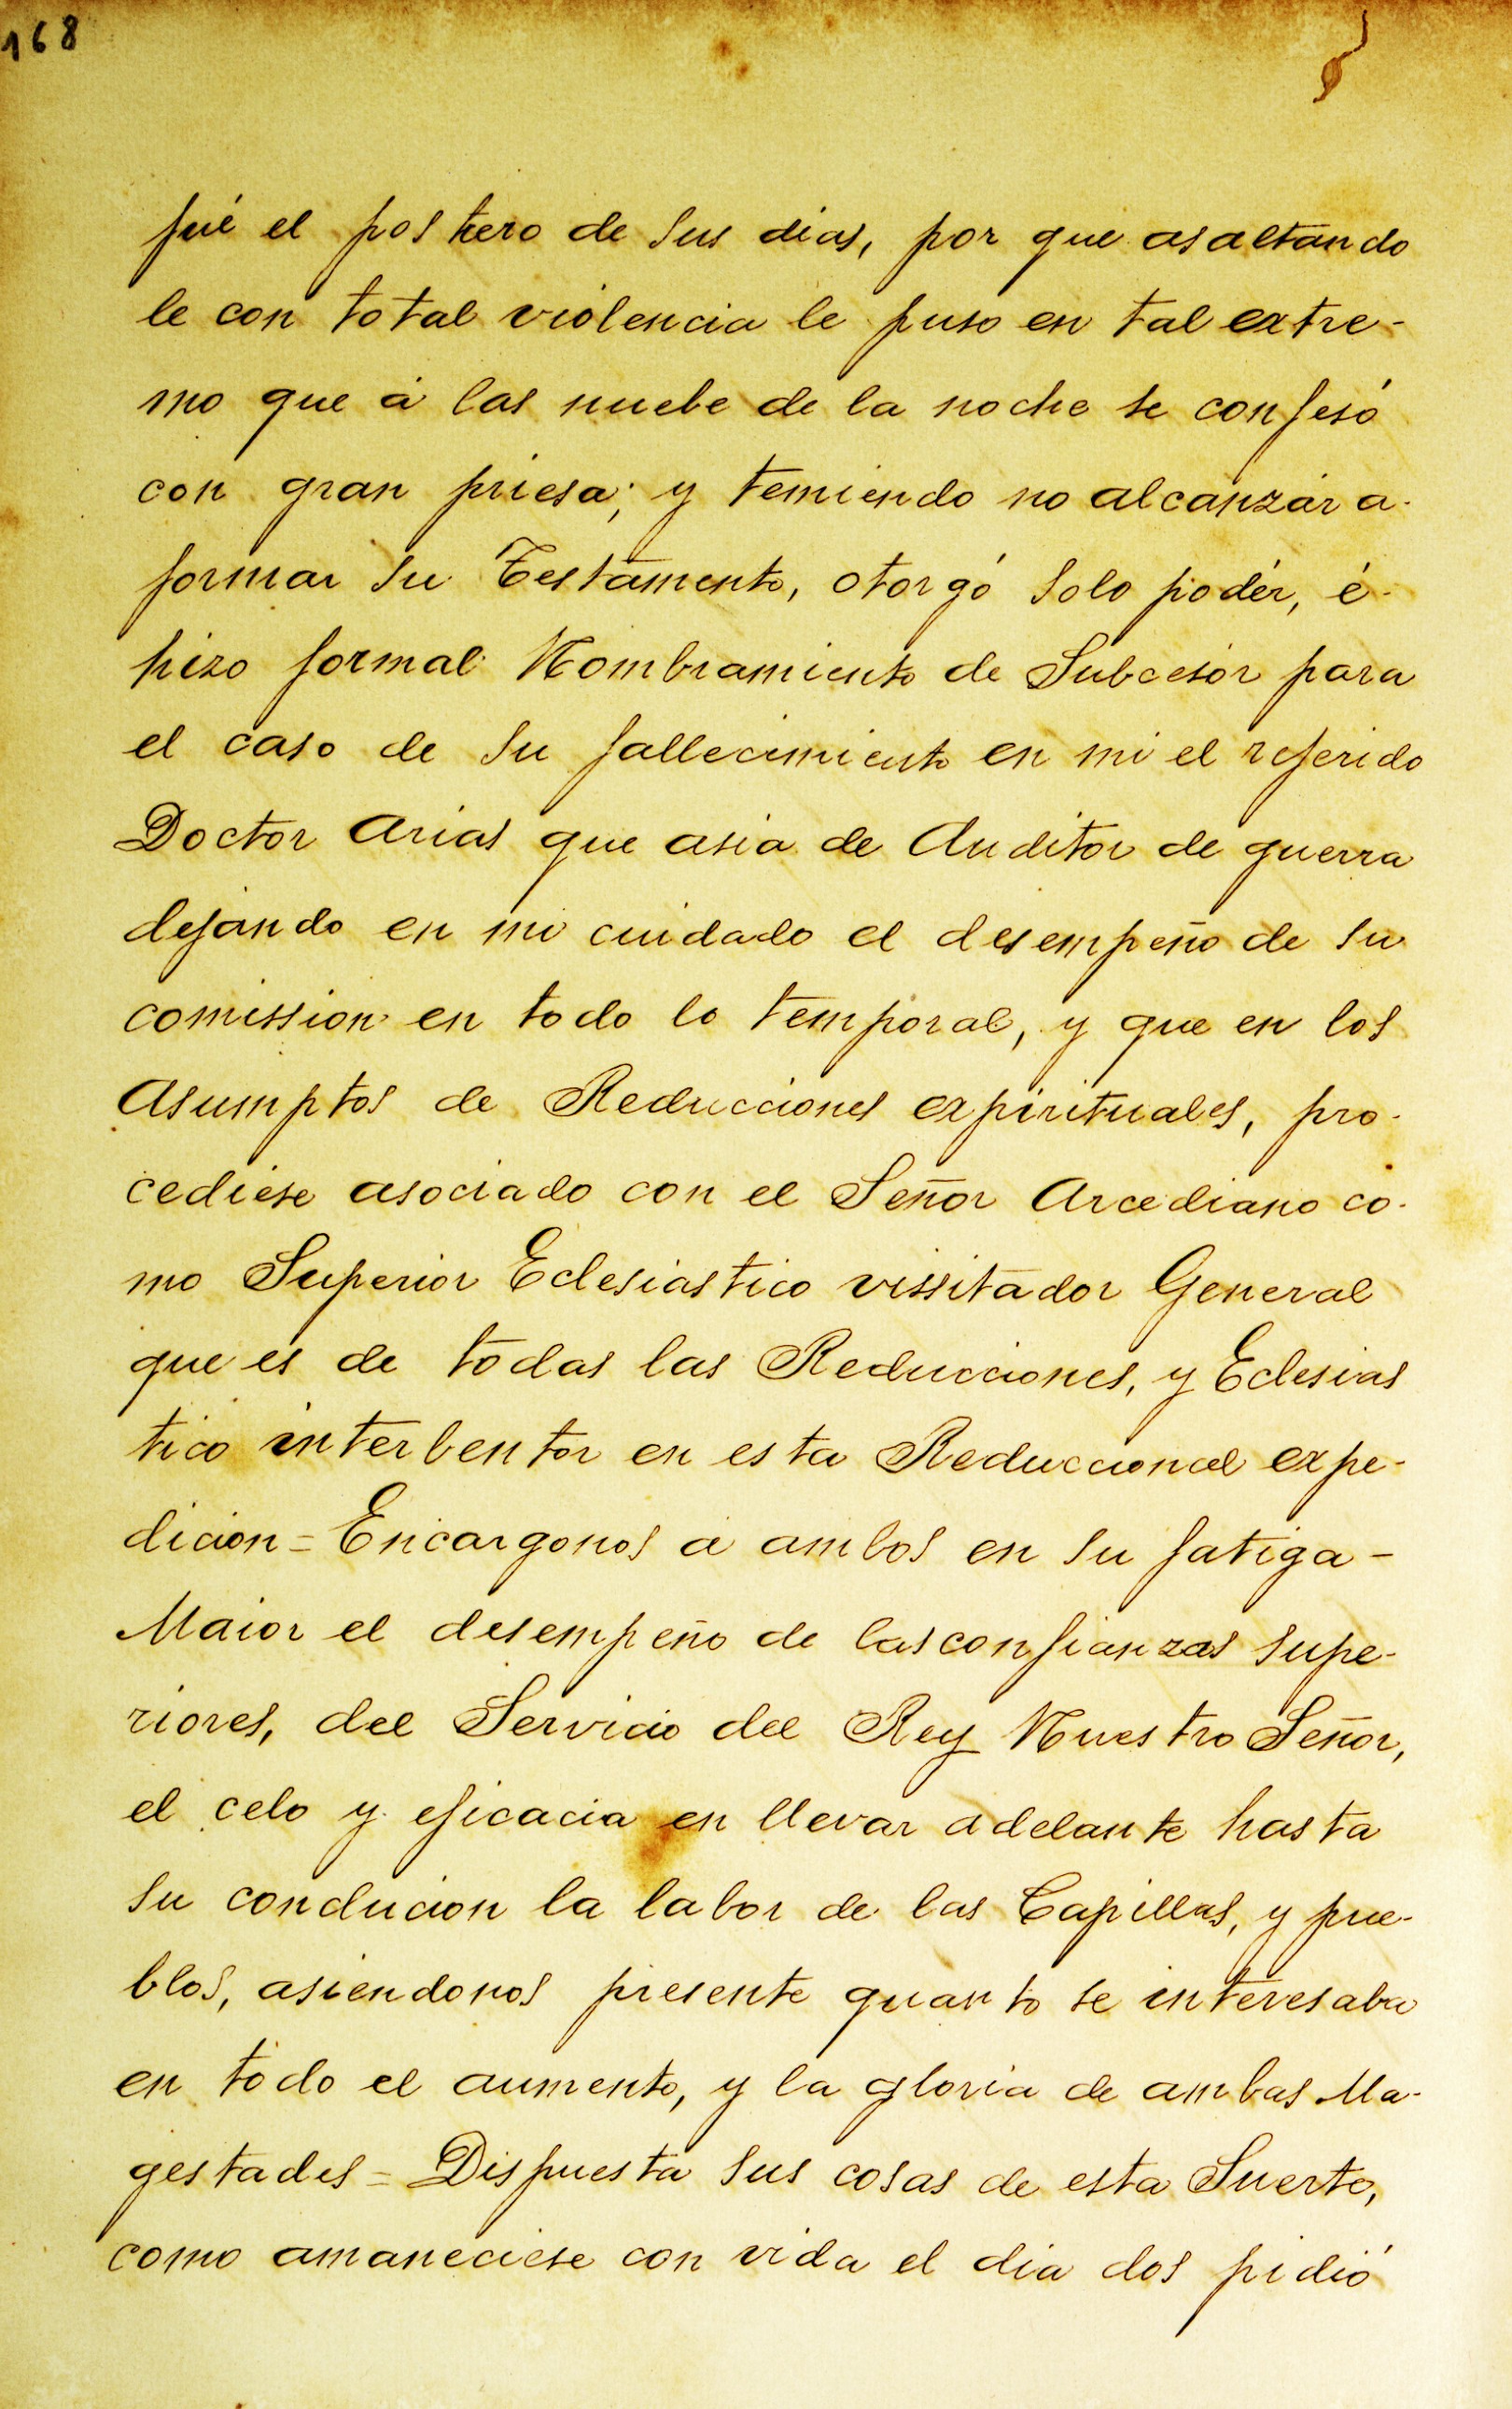 168
fué el postrero de sus dias, por que asaltando
le con total violencia le puso en tal extre-
mo que á las nuebe de la noche se confesó
con gran priesa; y temiendo no alcanzár a-
formar su Testamento, otorgó solo podér, é-
hizo formal Nombramiento de Subcesor para
el caso de su fallecimiento en mi el referido
Doctor Arias que asia de Auditor de guerra
dejando en mi cuidado el desempeño de su
comission en todo lo temporal, y que en los
Asumptos de Reducciones expirituales, pro-
cediese asociado con el Señor Arcediano co-
mo Superior Eclesiastico vissitador General
que es de todas las Reducciones, y Eclesias
tico interbentor en esta Reduccional expe-
dicion = Encargonos á ambos en su fatiga -
Maior el desempeño de las confianzas supe-
riores, del Servicio del Rey Nuestro Señor,
el celo y eficacia en llevar adelante hasta
su conducion la labor de las Capillas, y pue-
blos, asiendonos presente quanto se interesaba
en todo el aumento, y la gloria de ambas Ma-
gestades = Dispuesta sus cosas de esta Suerte,
como amaneciese con vida el dia dos pidió